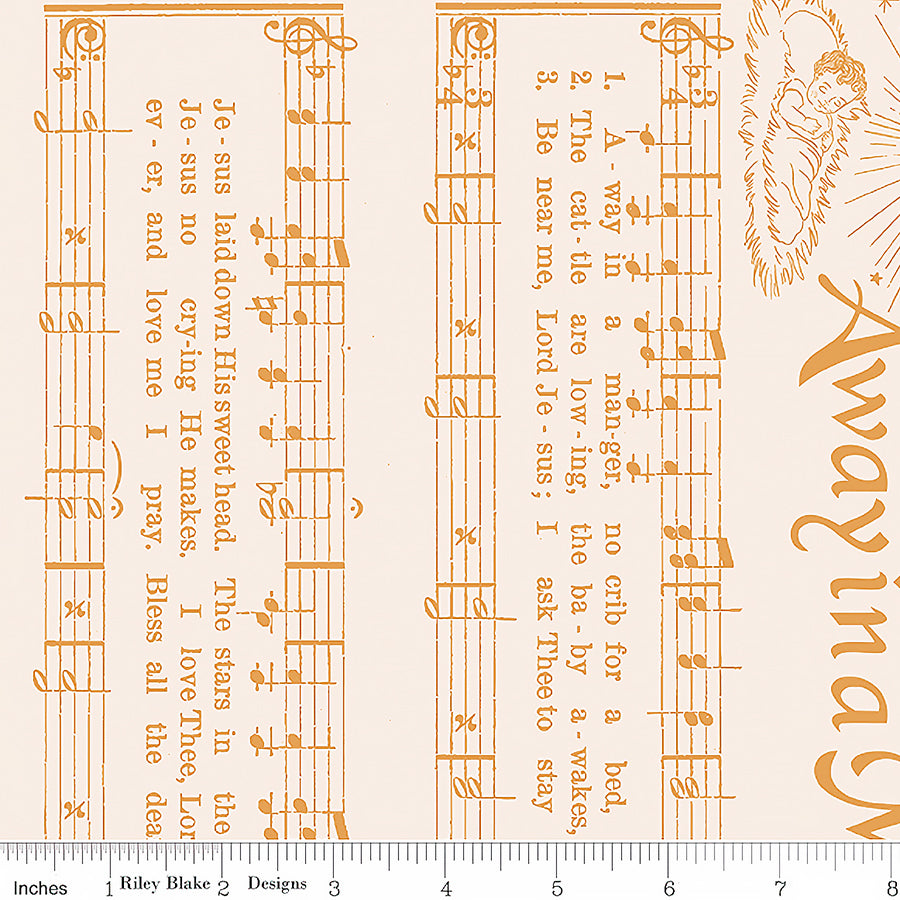 Away in a M
3 4
3 4
1. A - way in a man-ger, no crib for a bed,
2. The cat - tle are low - ing, the ba - by a - wakes,
3. Be near me, Lord Je - sus; I ask Thee to stay
Je - sus laid down His sweet head. The stars in the
Je - sus no cry-ing He makes. I love Thee, Lor
ev - er, and love me I pray. Bless all the dea
Inches 1 Riley Blake 2 Designs 3 4 5 6 7 8